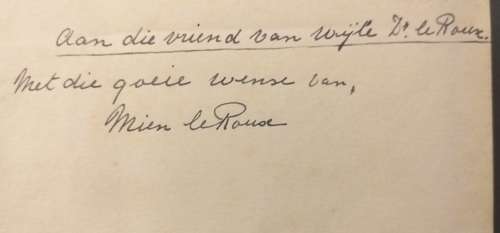 Aan die vriend van wyle Dr. le Roux.
Met die goeie wense van,
Mien le Roux